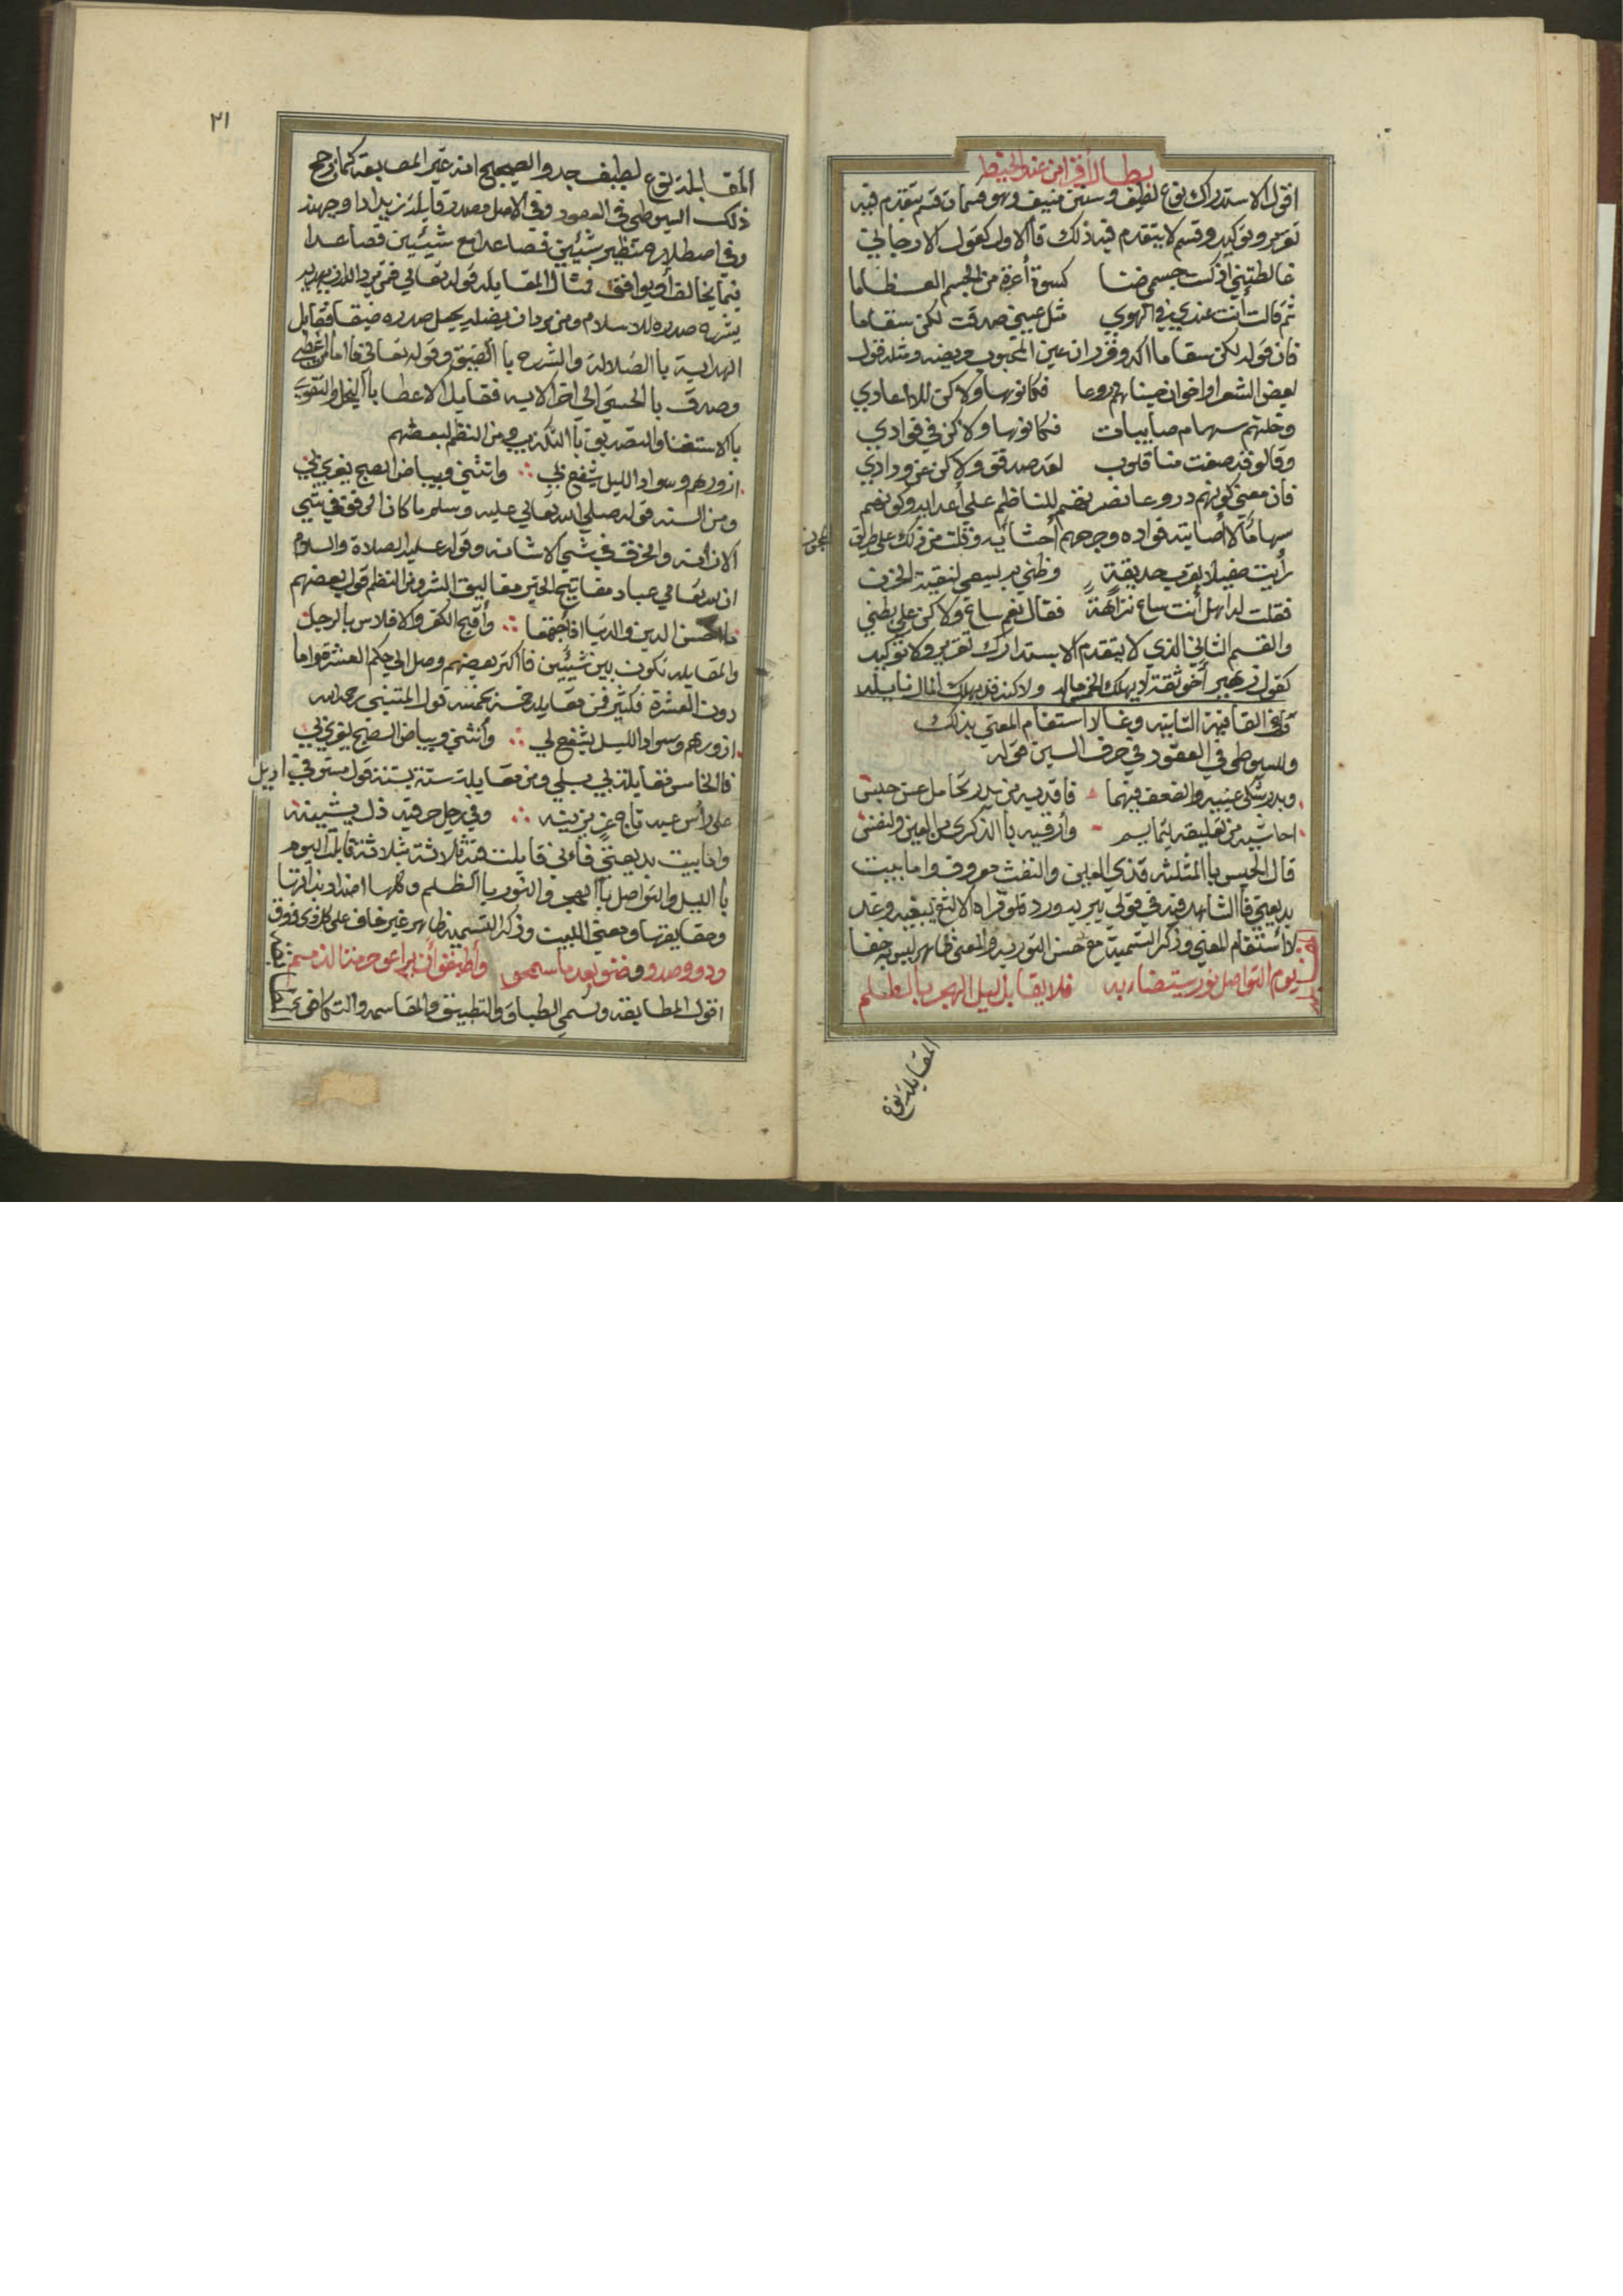 بطالا فرامن عند الحنيط
اقول الاستدراك نوع لطيف وسنن منيف وهو قسمان قسم يتقدم فيه
تقرير وتوكيد وقسم لا يتقدم فيه ذلك فاالاول كقول الارجاني
غالطتني اذ كست جسمي ضنا كسوة أعرت من الجسم العظاما
ثم قالت أنت عندي في الهوي مثل عيني صدقت لكن سقاما
فان قوله لكن سقاما اكد وقرر ان عين المحبوب مريضه ومثله قول
بعض الشعرا واخوان حسبناهم دروعا فكانوها ولاكن للاعادي
وخلتهم سهام صايبات فكانوها ولاكن في فوادي
وقالو قد صفت منا قلوب لقد صدقو ولاكن عن ودادي
فان معني كونهم دروعا نصرتهم للناظم علي أعدايه وكونهم
سهاما لاصابته فواده وجرحهم أحشائه وقلت من ذلك علي طريق المجون
رأيت صقيلا بقرب حديقة وظني به يسعي لنقبة الحزن
فقلت له اهل أنت ساع نزاهة فقال نعم ساع ولاكن علي بطني
والقسم الثاني الذي لا يتقدم الاستدراك تقرير ولا توكيد
كقول زهير أخو ثقة لا يهلك الخمر ماله ولاكنه قد يهلك المال نايله
في القافية الثانيه وغالا استفام المعني بذلك
وللسيوطي في العقود في حرف السين قوله
وبدر شكي عينيه والضعف فيهما فافديه من بدر تحامل عن حبس
احاشيه من تعليقه لتمايم وأرقيه باالذكري من العين والنفس
قال الحبس باالمثلثه قذي العين والنفث معروف واما بيت
بديعيتي فاالشاهد فيه في قولي يريد ورد فلو قراه الالثغ يبغيه وعد
لا أستقام المعني وذكر التسمية مع حسن التوريه والمعني ظاهر ليس به خفا
يوم التواصل نور يستضاء به فلا يقابل ليل الهجر باالظلم
المقابله نوع
٢١
المقابلة نوع لطيف جد والصحيح انه غير المطابقة كما رجح
ذلك السيوطي في العقود وفي الاصل مصدر قابلة زيد اذا وجهته
وفي اصطلاح تنظير شيئين فصاعدا مع شيئين فصاعدا
فيما يخالف أو يوافق فمثال المقابله قوله تعالي فمن يرد الله ان يهديه
يشرح صدره للاسلام ومن يرد ان يضله يجعل صدره ضيقا فقابل
الهداية باالضلالة والشرح باالضيق وقوله تعالي فاما من اعطي
وصدق باالحسني الي اخر الايه فقابل الاعطا باالبخل والتقوي
باالاستغنا والتصديق باالتكذيب ومن النظم لبعضهم
ازورهم وسواد الليل يشفع لي وانثني وبياض الصبح يغري بي
ومن السنه قوله صلي الله تعالي عليه وسلم ما كان الرفق في شي
الا زانه والخرق في شي الا شانه وقوله عليه الصلاة والسلام
ان لله تعالي عباد مفاتيح الخير مغاليق الشر ومن النظم قول بعضهم
ما احسن الدين والدنيا اذا أجتمعا وأقبح الكفر والافلاس بالرجل
والمقابله تكون بين شيئين فاكثر بعضهم وصل الي حكم العشر واما
دون العشرة فكثير فمن مقابلة خمسة بخمسة قول المتنبي رحمه الله
ازورهم وسواد الليل يشفع لي وأنثني وبياض الصبح يغري بي
فالخامس مقابلة بي بلي ومن مقابلة ستة بستة قول
علي رأس عبد تاج عز يزينه وفي رجل حر قيد ذل يشينه
واما بيت بديعيتي فاءني قابلت فيه ثلاثة بثلاثة قابلت اليوم
باالليل والتواصل باالهجر والنور باالظلم وكلها اضداد بذاتها
وحقايقها ومعني البيت وذكر التسمية ظاهر غير خاف علي كل ذي ذوق
ودو وصدو وضنو بعد ما سمحو وأطبقو أن يراعو حرمة الذمم
اقول المطابقة وتسمي الطباق والتطبيق والمقاسمه والتكافي